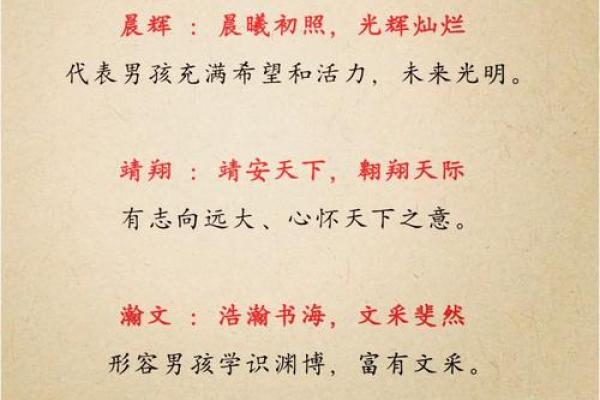 晨辉：晨曦初照，光辉灿烂
代表男孩充满希望和活力，未来光明。
靖翔：靖安天下，翱翔天际
有志向远大、心怀天下之意。
瀚文：浩瀚书海，文采斐然
形容男孩学识渊博，富有文采。